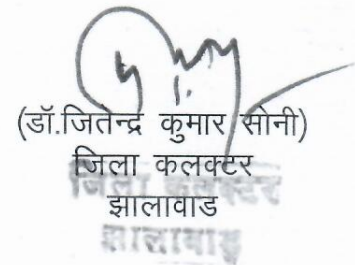 (डॉ.जितेन्द्र कुमार सोनी)
जिला कलक्टर
झालावाड
जिला कलक्टर
झालावाड़